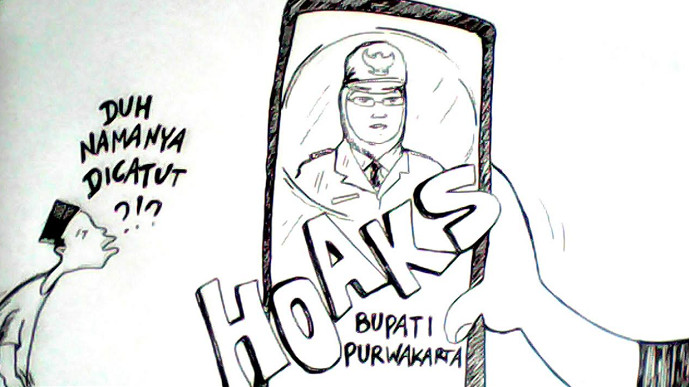 DUH
NAMANYA
DICATUT
?!?
HOAKS
BUPATI
PURWAKARTA